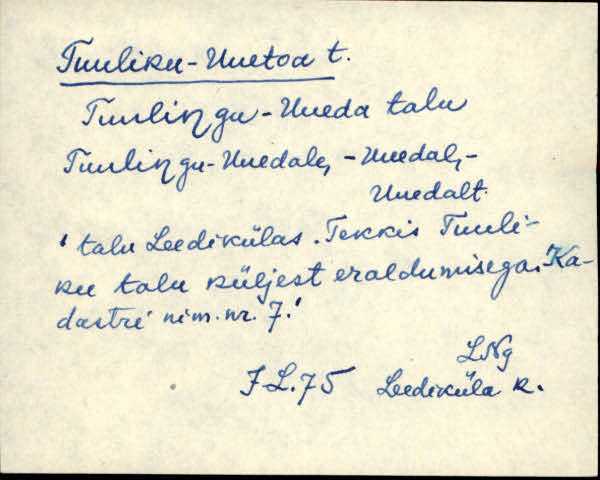 Tuuliku-Uuetoa t.
Tuuliŋgu-Uueda talu
Tuuliŋgu-Uuedale, -Uuedal,-
Uuedalt.
' talu Leedikülas. Tekkis Tuuli-
ku talu küljest eraldumisega. Ka-
dastri nim. nr. 7.'
LNg
J L.75 Leediküla k.